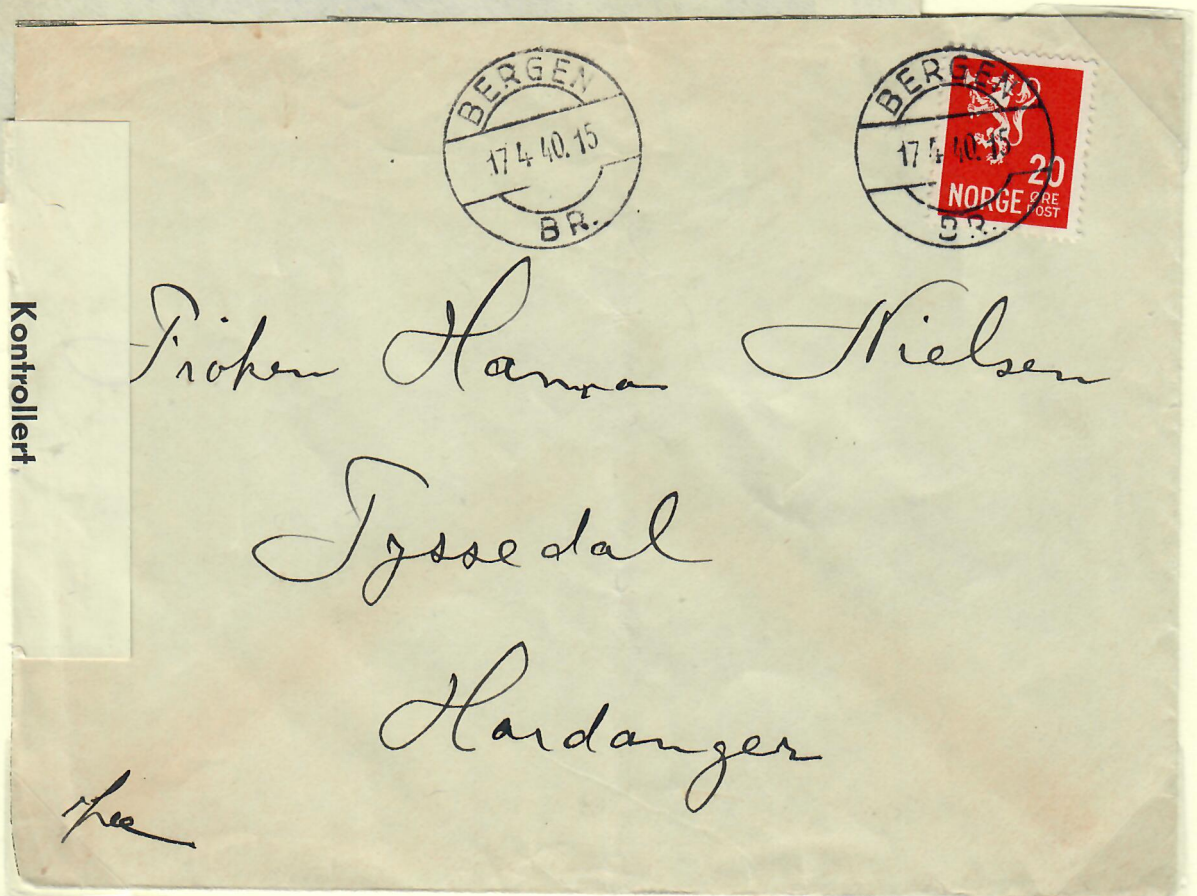 BERGEN
17.4.40.15
BR.
BERGEN
17.4.40.15
BR.
20
NORGE ØRE
POST
Kontrollert
Fröken Hanna Nielsen
Tyssedal
Hardanger